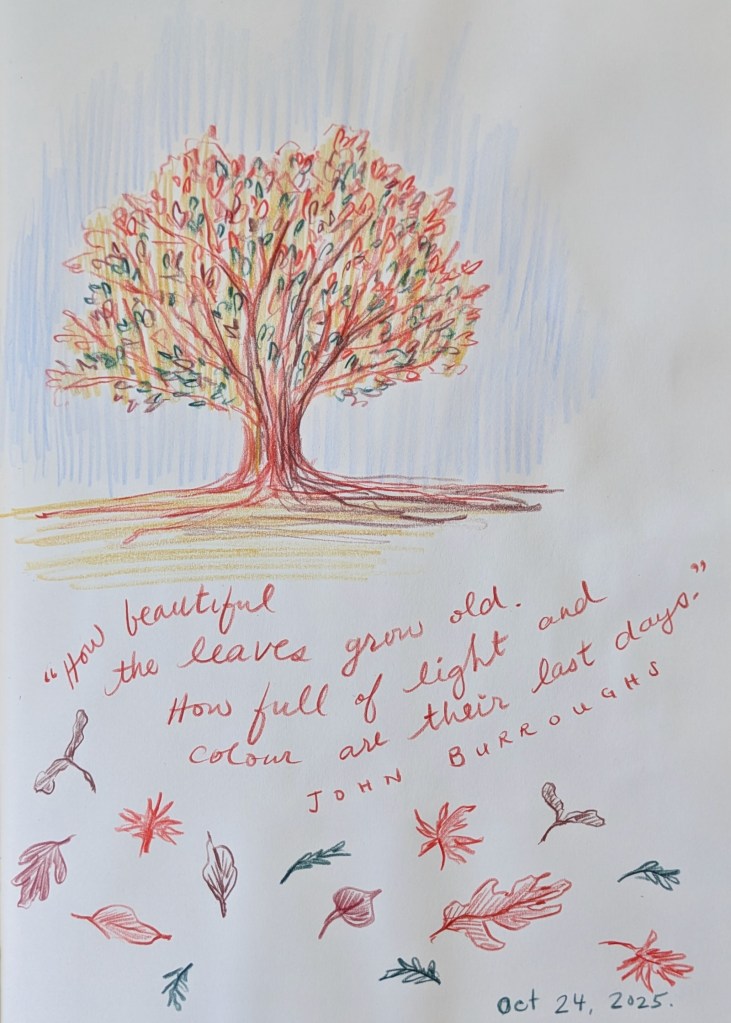 "How beautiful
the leaves grow old.
How full of light and
colour are their last days."
JOHN BURROUGHS
Oct 24, 2025.